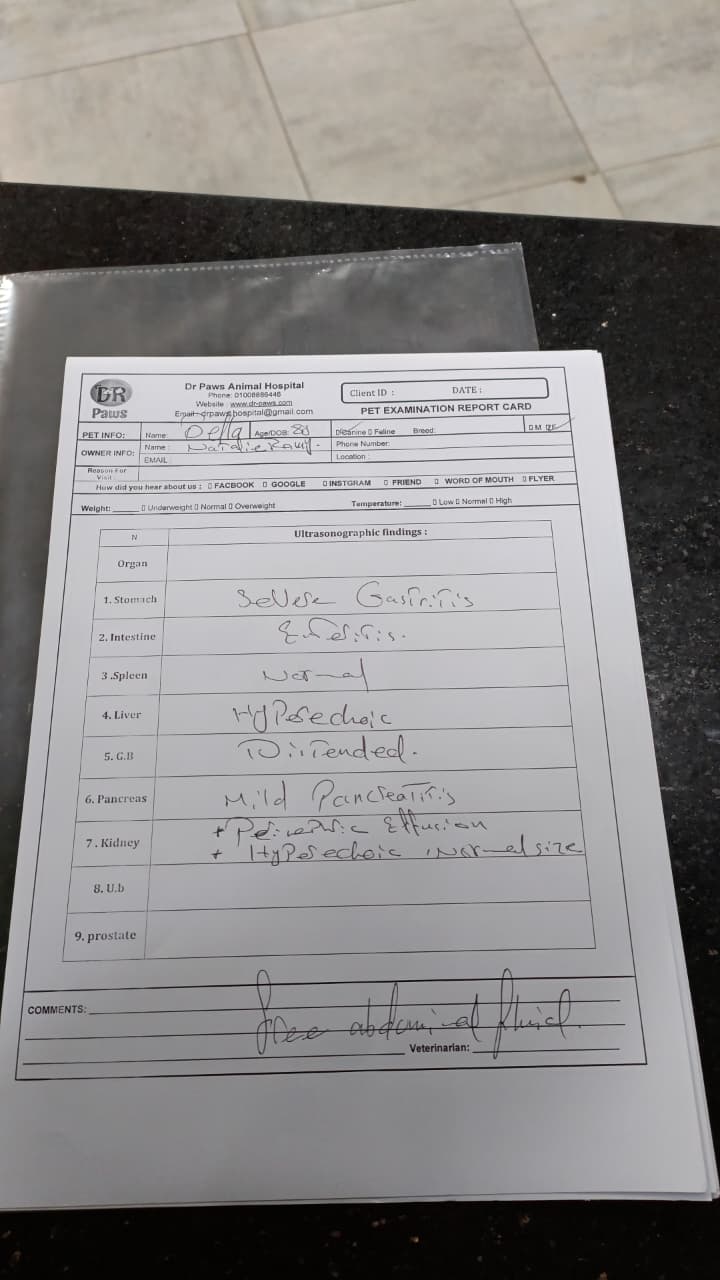 DR
Paws
Dr Paws Animal Hospital
Phone: 01008889446
Website : www.dr-paws.com
Email:-drpaws.hospital@gmail.com
Client ID : DATE :
PET EXAMINATION REPORT CARD
PET INFO: Name: Della Age/DOB: Canine Feline Breed: M F
OWNER INFO: Name : Natalie Ramy Phone Number:
EMAIL Location :
Reason For
Visit
How did you hear about us : FACBOOK GOOGLE INSTGRAM FRIEND WORD OF MOUTH FLYER
Weight: Underweight Normal Overweight Temperature: Low Normal High
N Ultrasonographic findings :
Organ
1. Stomach Severe Gastritis
2. Intestine Enteritis.
3 .Spleen Normal
4. Liver Hyperechoic
5. G.B Distended.
6. Pancreas Mild Pancreatitis
7. Kidney + Perinephric Effusion
+ Hyperechoic , Normal size
8. U.b
9. prostate
COMMENTS: free abdominal fluid.
Veterinarian: